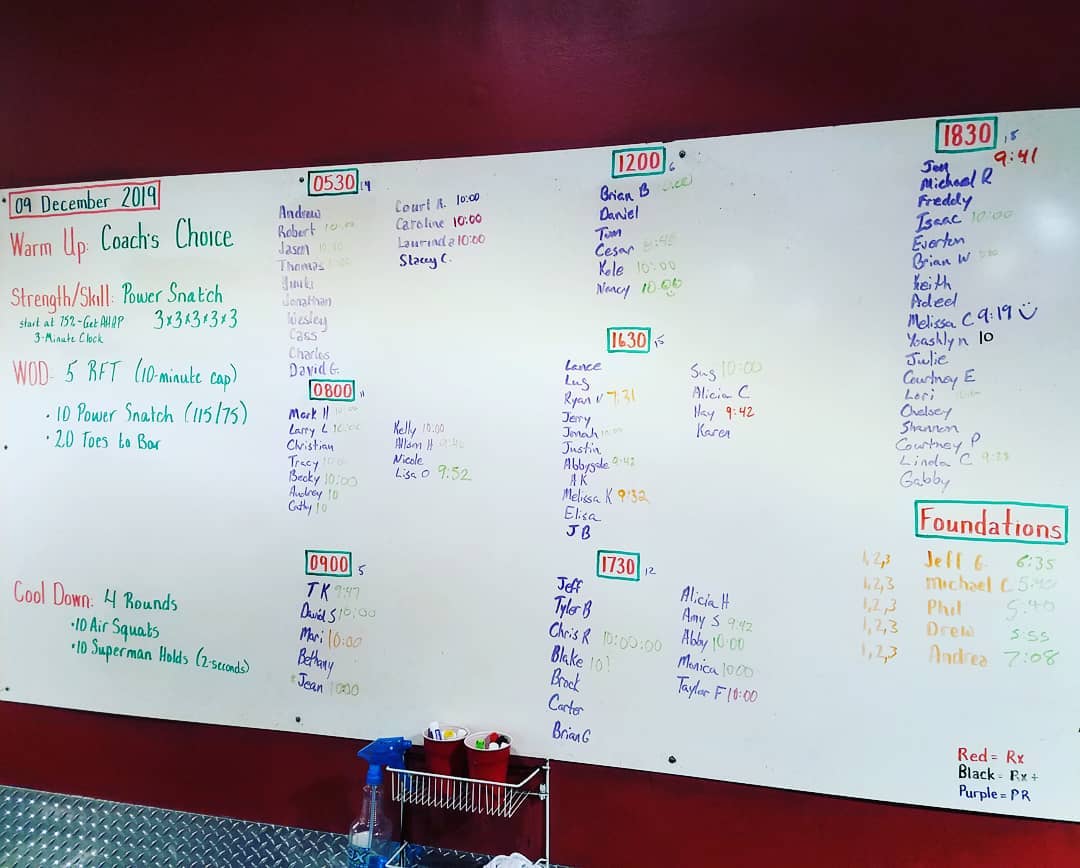 09 December 2019
Warm Up: Coach's Choice
Strength/Skill: Power Snatch
start at 75% - Get AHAP 3x3x3x3x3
3-Minute Clock
WOD: 5 RFT (10-minute cap)
• 10 Power Snatch (115/75)
• 20 Toes to Bar
Cool Down: 4 Rounds
•10 Air Squats
•10 Superman Holds (2-seconds)
0530 14
Andrew
Robert 10:00
Jason 10:00
Thomas
Jonathan
Wesley
Cass
Charles
David G.
Court R. 10:00
Caroline 10:00
Laurinda 10:00
Stacey C.
0800 11
Mark H 10:00
Larry L 10:00
Christian
Tracy 10:00
Becky 10:00
Audrey 10
Cathy 10
Kelly 10:00
Adam H
Nicole
Lisa O 9:52
0900 5
TK 9:47
David S 10:00
Mari 10:00
Bethany
Jean 10:00
1200 6
Brian B
Daniel
Tom
Cesar
Kole 10:00
Nancy 10:00
1630 15
Lance
Lug
Ryan V 7:31
Jerry
Jonah 10:00
Justin
Abbygale 9:42
AK
Melissa K 9:32
Elisa
JB
Sug 10:00
Alicia C
Hay 9:42
Karen
1730 12
Jeff
Tyler B
Chris R 10:00:00
Blake 10!
Brock
Carter
Brian G
Alicia H
Amy S 9:42
Abby 10:00
Monica 10:00
Taylor F 10:00
1830 18
Jon 9:41
Michael R
Freddy
Isaac 10:00
Everton
Brian W
Keith
Adeel
Melissa C 9:19
Yoashlyn 10
Julie
Courtney E
Lori
Chelsey
Shannon
Courtney P
Linda C 9:28
Gabby
Foundations
1,2,3 Jeff G. 6:35
1,2,3 Michael C 5:40
1,2,3 Phil 5:40
1,2,3 Drew 5:55
1,2,3 Andrea 7:08
Red = Rx
Black = Rx+
Purple = PR